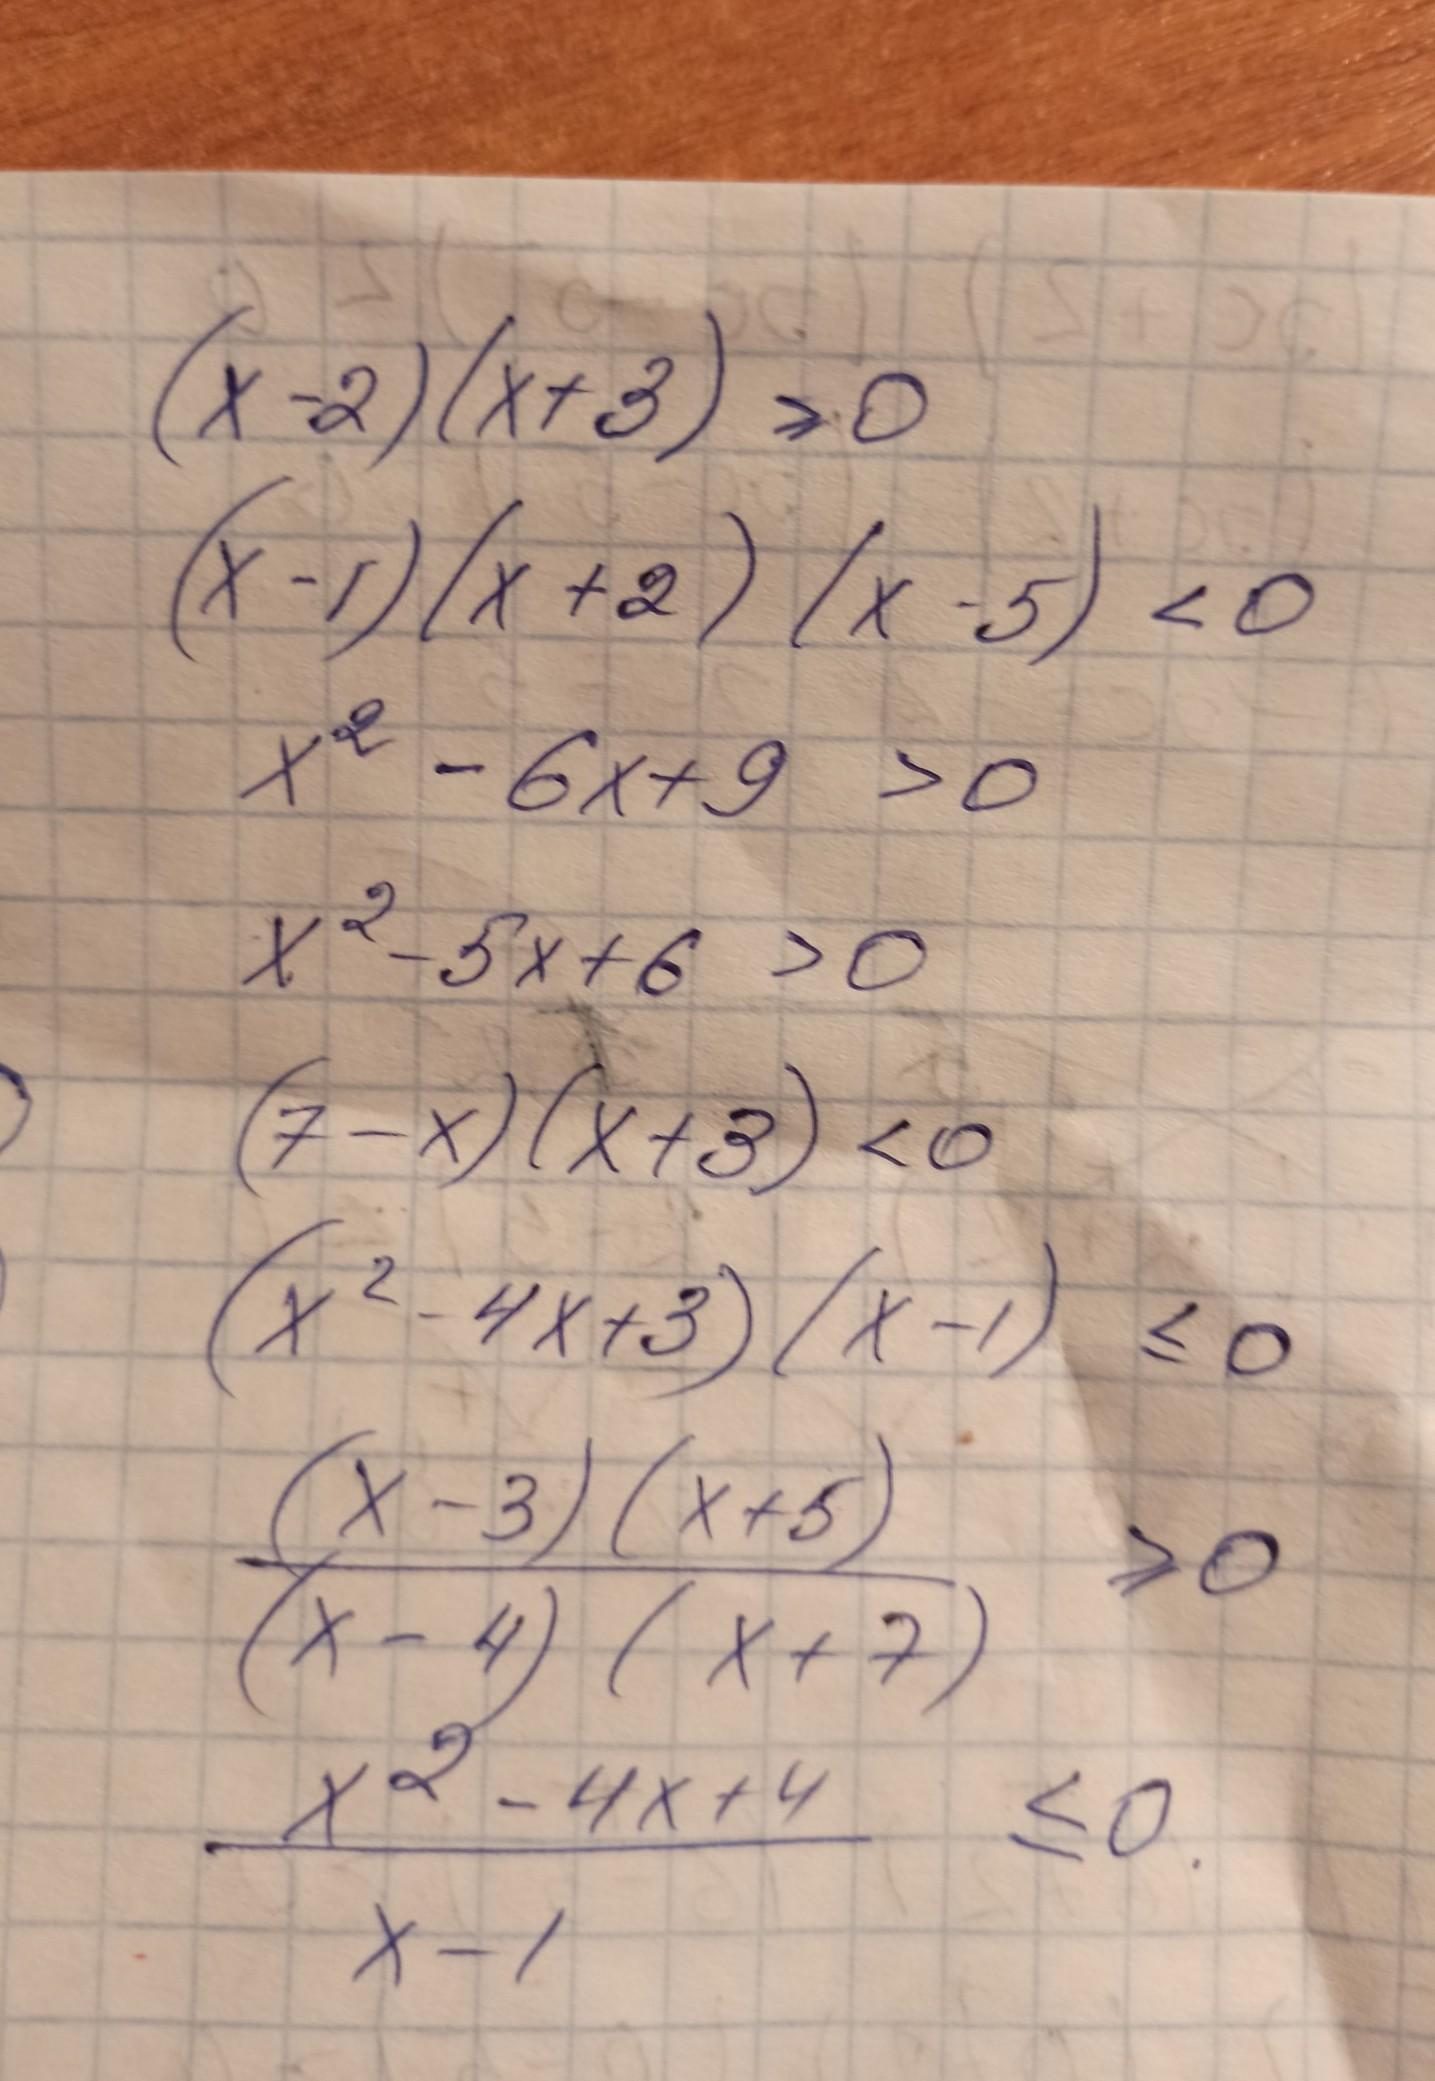 (x-2)(x+3) ⩾ 0
(x-1)(x+2)(x-5) < 0
x² - 6x + 9 > 0
x² - 5x + 6 > 0
(7-x)(x+3) < 0
(x² - 4x + 3)(x-1) ≤ 0
(x-3)(x+5)
⩾ 0
(x-4)(x+7)
x² - 4x + 4
≤ 0.
x-1